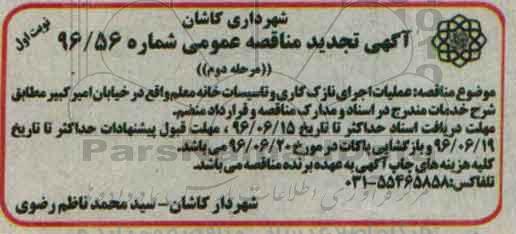 شهرداری کاشان
نوبت اول
آگهی تجدید مناقصه عمومی شماره ۹۶/۵۶
((مرحله دوم))
موضوع مناقصه: عملیات اجرای نازک کاری و تاسیسات خانه معلم واقع در خیابان امیر کبیر مطابق
شرح خدمات مندرج در اسناد و مدارک مناقصه و قرارداد منضم.
مهلت دریافت اسناد حداکثر تا تاریخ ۹۶/۰۶/۱۵ ، مهلت قبول پیشنهادات حداکثر تا تاریخ
۹۶/۰۶/۱۹ و بازگشایی پاکات در مورخ ۹۶/۰۶/۲۰ می باشد.
کلیه هزینه های چاپ آگهی به عهده برنده مناقصه می باشد.
تلفاکس: ۵۵۴۶۵۸۵۸-۰۳۱
شهردار کاشان - سید محمد ناظم رضوی